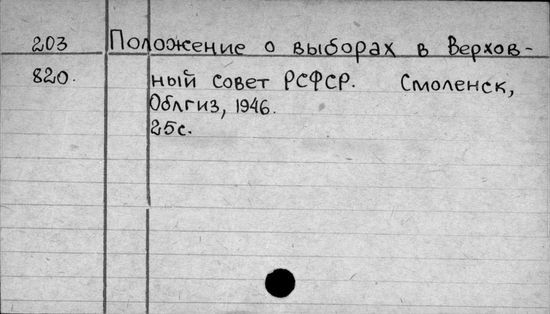 203 Положение о выборах в Верхов-
820. ный совет РСФСР. Смоленск,
Облгиз, 1946.
25с.